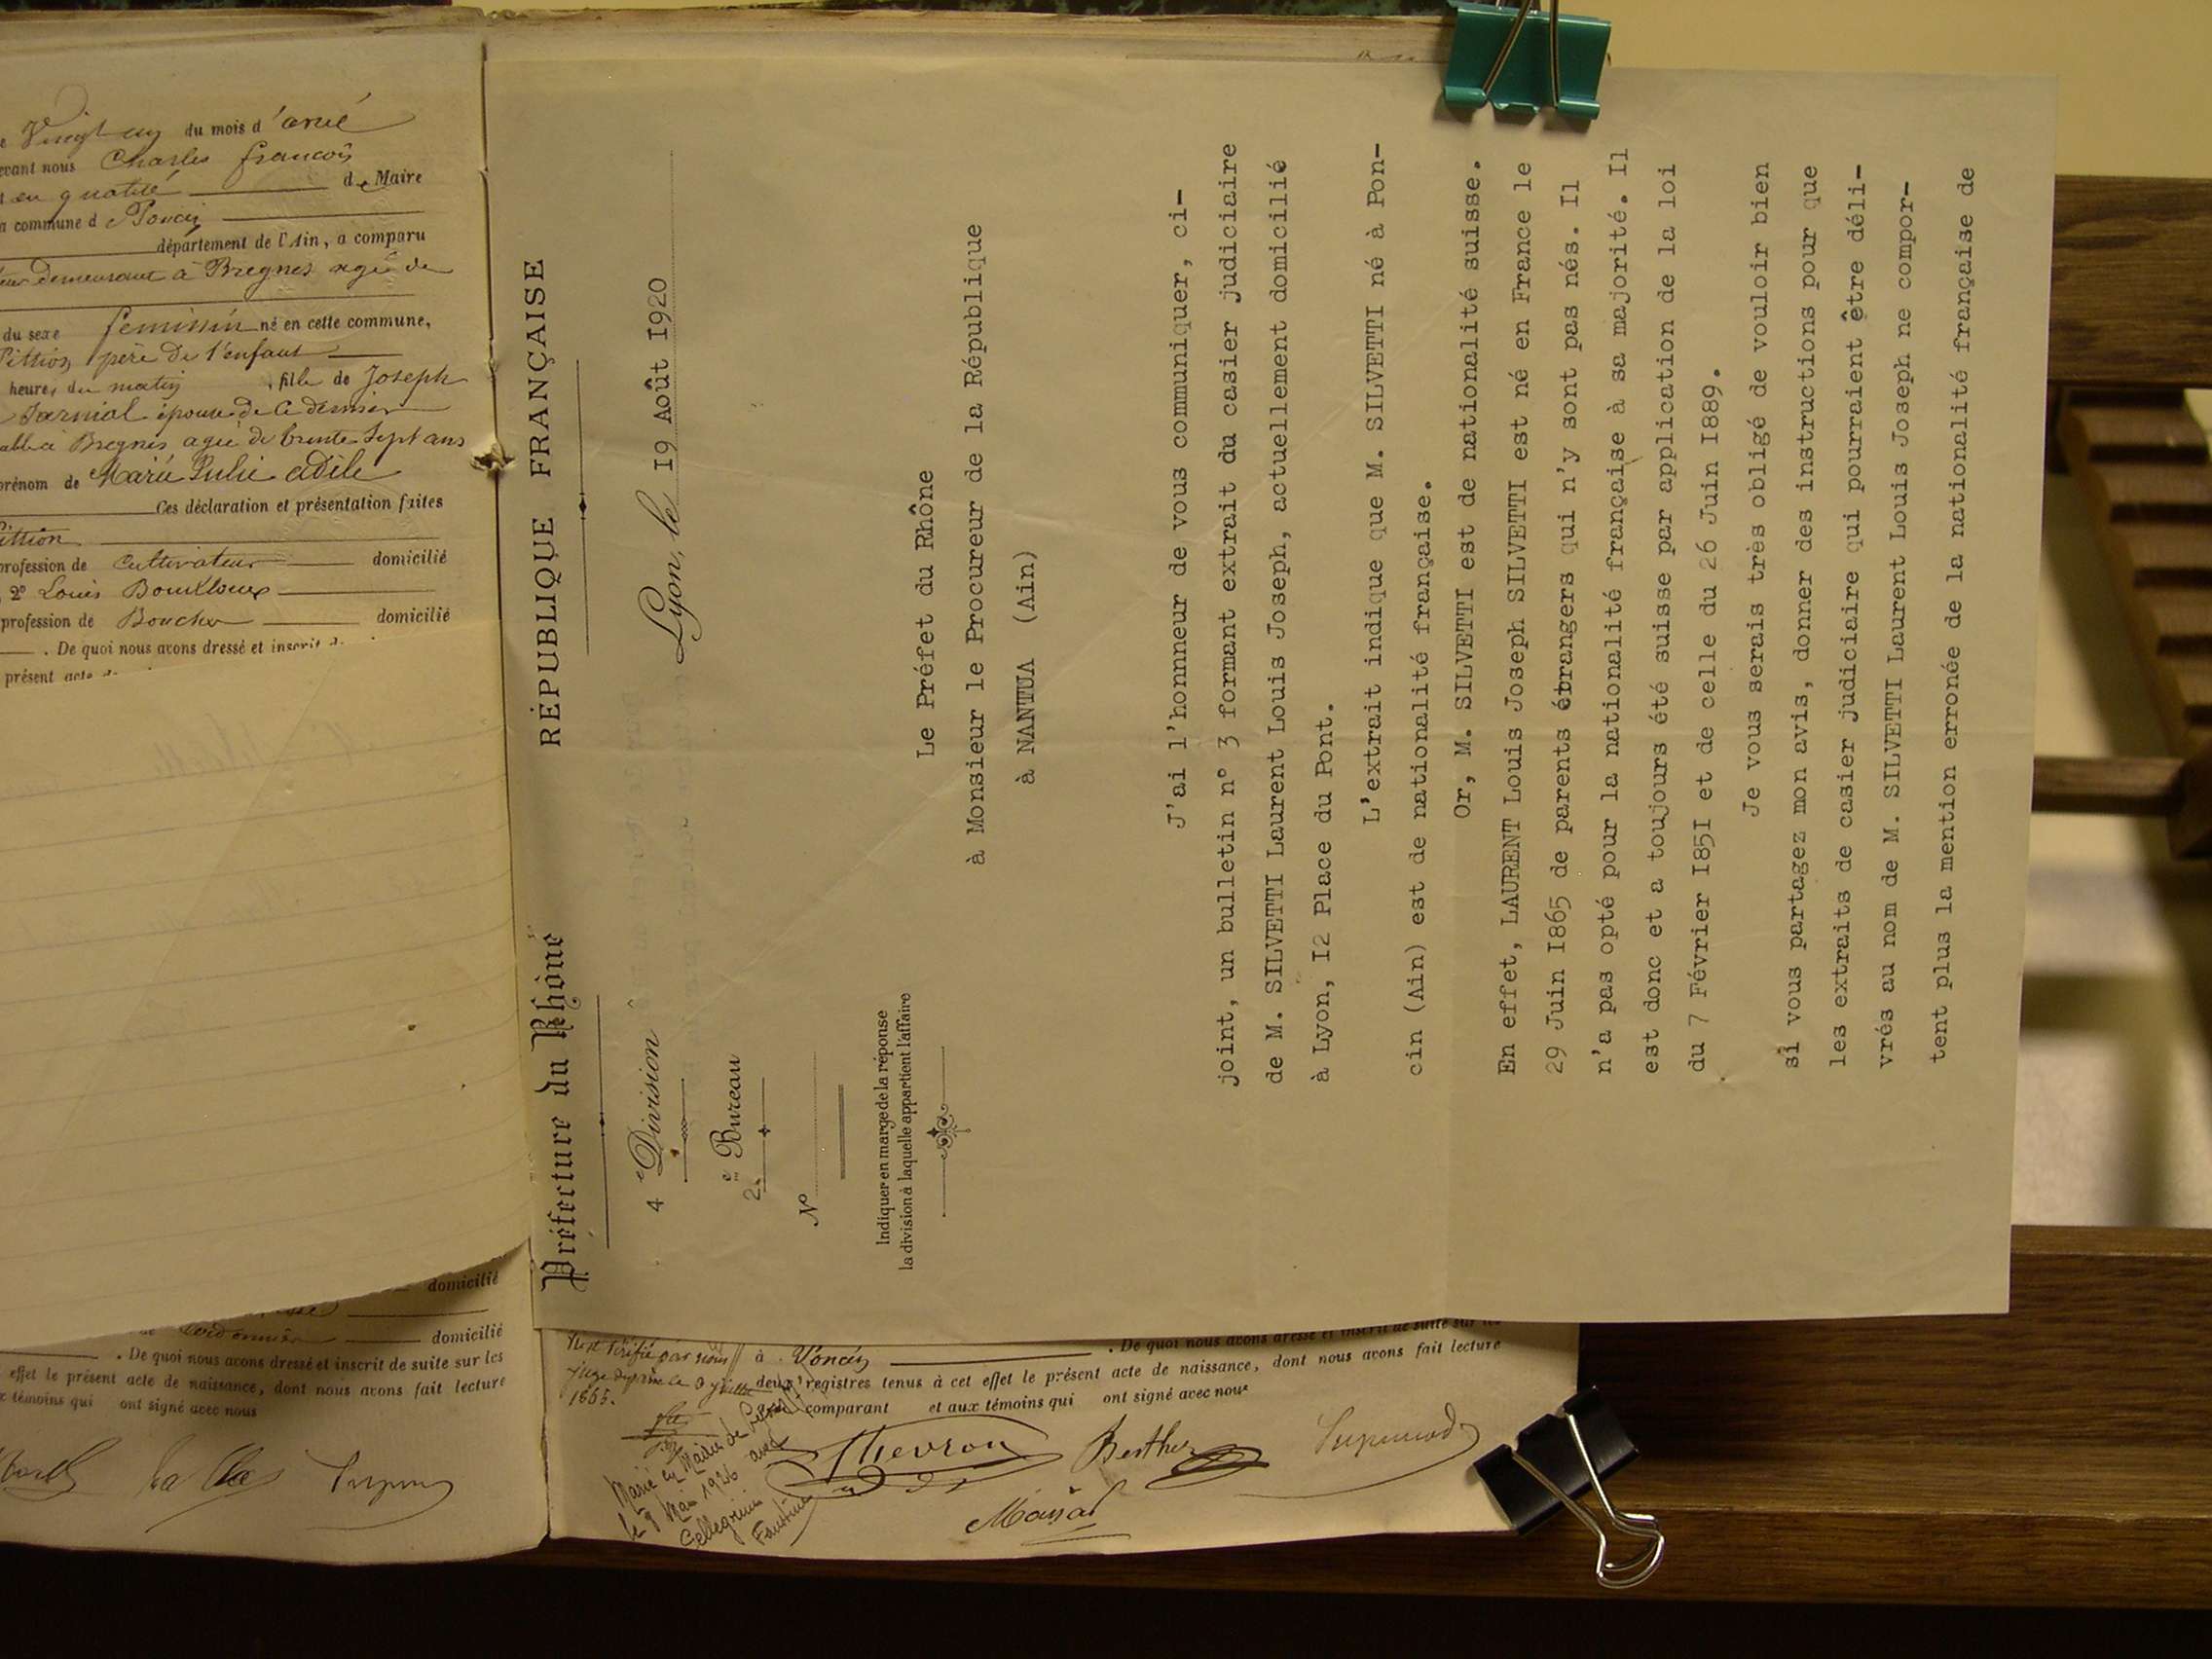 Vingt un du mois d'avril
evant nous Charles françois
en qualité de Maire
a commune d Poncin
département de l'Ain, a comparu
demeurant à Bregnes agé de
du sexe féminin né en cette commune,
Pittion père de l'enfant
heures du matin, fille de Joseph
Jarniol épouse de ce dernier
à Bregnes agée de trente sept ans
prénom de Marie Julie adèle
Ces déclaration et présentation faites
ittion
profession de Cultivateur domicilié
2° Louis
profession de Boucher domicilié
. De quoi nous avons dressé et inscrit
présent acte
domicilié
domicilié
. De quoi nous avons dressé et inscrit de suite sur les
effet le présent acte de naissance, dont nous avons fait lecture
x témoins qui ont signé avec nous
Préfecture du Rhône
RÉPUBLIQUE FRANÇAISE
4e Division
Lyon, le 19 Août I920
2.e Bureau
N°
Indiquer en marge de la réponse
la division à laquelle appartient l'affaire
Le Préfet du Rhône
à Monsieur le Procureur de la République
à NANTUA (Ain)
J'ai l'honneur de vous communiquer, ci-
joint, un bulletin n° 3 formant extrait du casier judiciaire
de M. SILVETTI Laurent Louis Joseph, actuellement domicilié
à Lyon, I2 Place du Pont.
L'extrait indique que M. SILVETTI né à Pon-
cin (Ain) est de nationalité française.
Or, M. SILVETTI est de nationalité suisse.
En effet, LAURENT Louis Joseph SILVETTI est né en France le
29 Juin I865 de parents étrangers qui n'y sont pas nés. Il
n'a pas opté pour la nationalité française à sa majorité. Il
est donc et a toujours été suisse par application de la loi
du 7 Février I85I et de celle du 26 Juin I889.
Je vous serais très obligé de vouloir bien
si vous partagez mon avis, donner des instructions pour que
les extraits de casier judiciaire qui pourraient être déli-
vrés au nom de M. SILVETTI Laurent Louis Joseph ne compor-
tent plus la mention erronée de la nationalité française de
à Poncin . De quoi nous avons dressé et inscrit de suite sur les
deux registres tenus à cet effet le présent acte de naissance, dont nous avons fait lecture
comparant et aux témoins qui ont signé avec nous
1865.
Marié en Mairie de
le 9 Mai 1926 avec
Pellegrini
Faustine
Thevron
Berthet